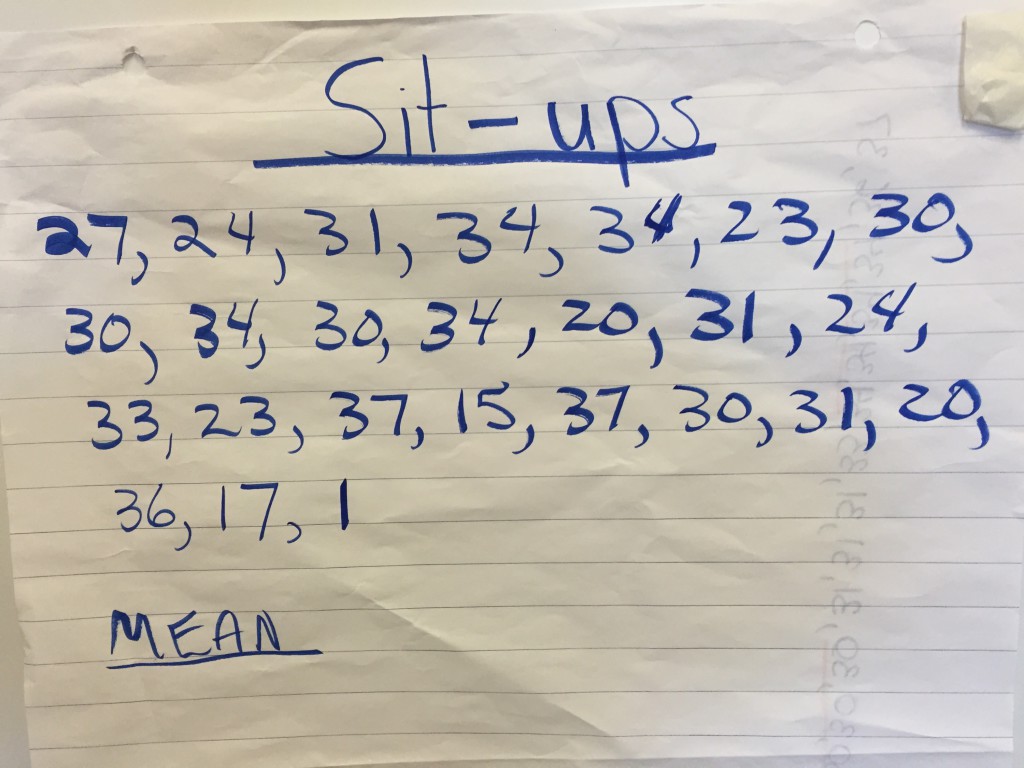 Sit-ups
27, 24, 31, 34, 34, 23, 30,
30, 34, 30, 34, 20, 31, 24,
33, 23, 37, 15, 37, 30, 31, 20,
36, 17, 1
MEAN